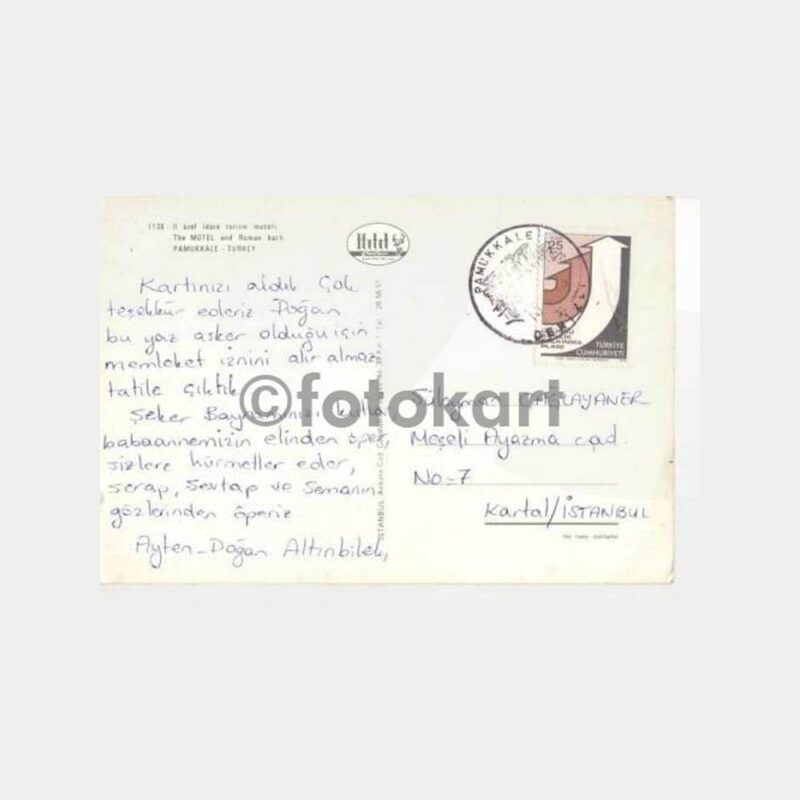 1138 - İl özel idare turizm moteli
The MOTEL and Roman bath
PAMUKKALE - TURKEY
Kartınızı aldık Çok
teşekkür ederiz Doğan
bu yaz asker olduğu için
memleket iznini alır almaz
tatile çıktık
Şeker Bayramınızı kutlar
babaannemizin elinden öper,
sizlere hürmetler eder,
serap, Sevtap ve Semanın
gözlerinden öperiz
Ayten-Doğan Altınbilek,
PAMUKKALE
25
KALKINMA
PLANI
TÜRKİYE
CUMHURİYETİ
Süleyman ÇAĞLAYANER
Meşeli Ayazma cad.
No=7
Kartal/İSTANBUL
İSTANBUL Ankara Cad.
©fotokart